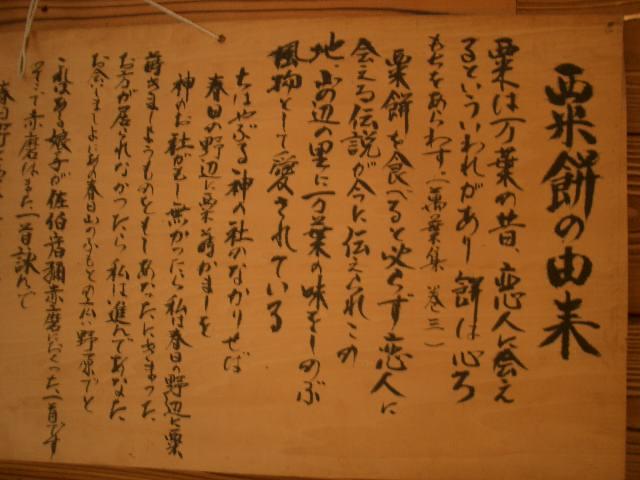 粟餅の由来
粟は万葉の昔、恋人に会え
るといういわれがあり 餅は心ろ
もちをあらわす。(萬葉集 巻三)
粟餅を食べると必らず恋人に
会える伝説が今に伝えられこの
地、山の辺の里に万葉の味をしのぶ
風物として愛されている
ちはやぶる神の社のなかりせば
春日の野辺に粟蒔かましを
神のお社がもし無かったら私は春日の野辺に粟
蒔きましょうものをもしあなたにきまった
お方が居られなかったら私は進んであなた
お会いましょにあの春日山のふもとの広い野原でと
これはある娘子が佐伯宿禰赤麿におくった一首です
そこで赤麿はまた一首詠んで
春日野に粟